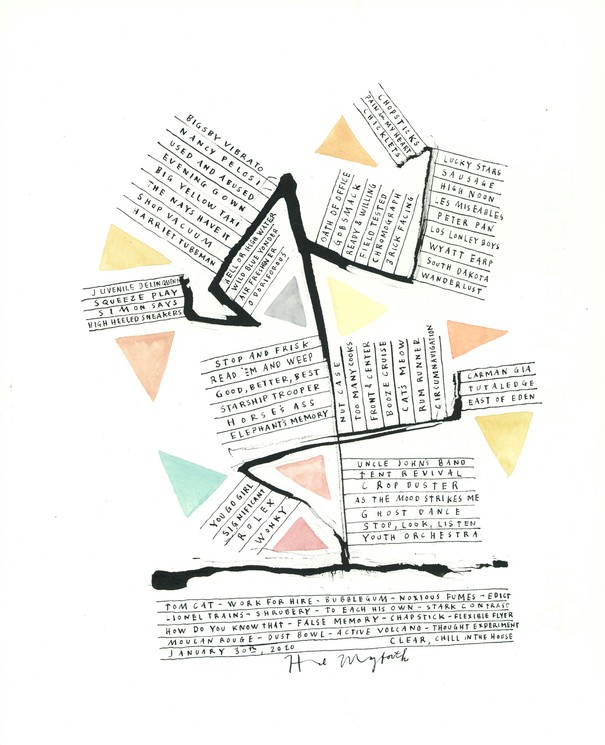 CHOPSTICKS
PAIN IN MY HEART
CHICKLETS
BIGSBY VIBRATO
NANCY PELOSI
USED AND ABUSED
EVENING GOWN
BIG YELLOW TAXI
THE NAYS HAVE IT
SHOP VACUUM
HARRIET TUBEMAN
HELL OR HIGH WATER
WILD BLUE YONDER
AIR FRESHENER
DORIFOROUS
OATH OF OFFICE
GOBSMACK
READY & WILLING
FIELD TESTED
CHROMOGRAPH
BRICK FACING
LUCKY STARS
SAUSAGE
HIGH NOON
LES MISEABLES
PETER PAN
LOS LONLEY BOYS
WYATT EARP
SOUTH DAKOTA
WANDERLUST
JUVENILE DELINQUENT
SQUEEZE PLAY
SIMON SAYS
HIGH HEELED SNEAKERS
STOP AND FRISK
READ 'EM AND WEEP
GOOD, BETTER, BEST
STARSHIP TROOPER
HORSE'S ASS
ELEPHANT'S MEMORY
NUT CASE
TOO MANY COOKS
FRONT & CENTER
BOOZE CRUISE
CAT'S MEOW
RUM RUNNER
CIRCUMNAVIGATION
CARMAN GIA
TUTALEDGE
EAST OF EDEN
YOU GO GIRL
SIGNIFICANT
ROLEX
WONKY
UNCLE JOHN'S BAND
TENT REVIVAL
CROP DUSTER
AS THE MOOD STRIKES ME
GHOST DANCE
STOP, LOOK, LISTEN
YOUTH ORCHESTRA
TOM CAT - WORK FOR HIRE - BUBBLEGUM - NOXIOUS FUMES - EDICT
LIONEL TRAINS - SHRUBERY - TO EACH HIS OWN - STARK CONTRAST
HOW DO YOU KNOW THAT - FALSE MEMORY - CHAPSTICK - FLEXIBLE FLYER
MOULAN ROUGE - DUST BOWL - ACTIVE VOLCANO - THOUGHT EXPERIMENT
JANUARY 30th, 2020 CLEAR, CHILL IN THE HOUSE